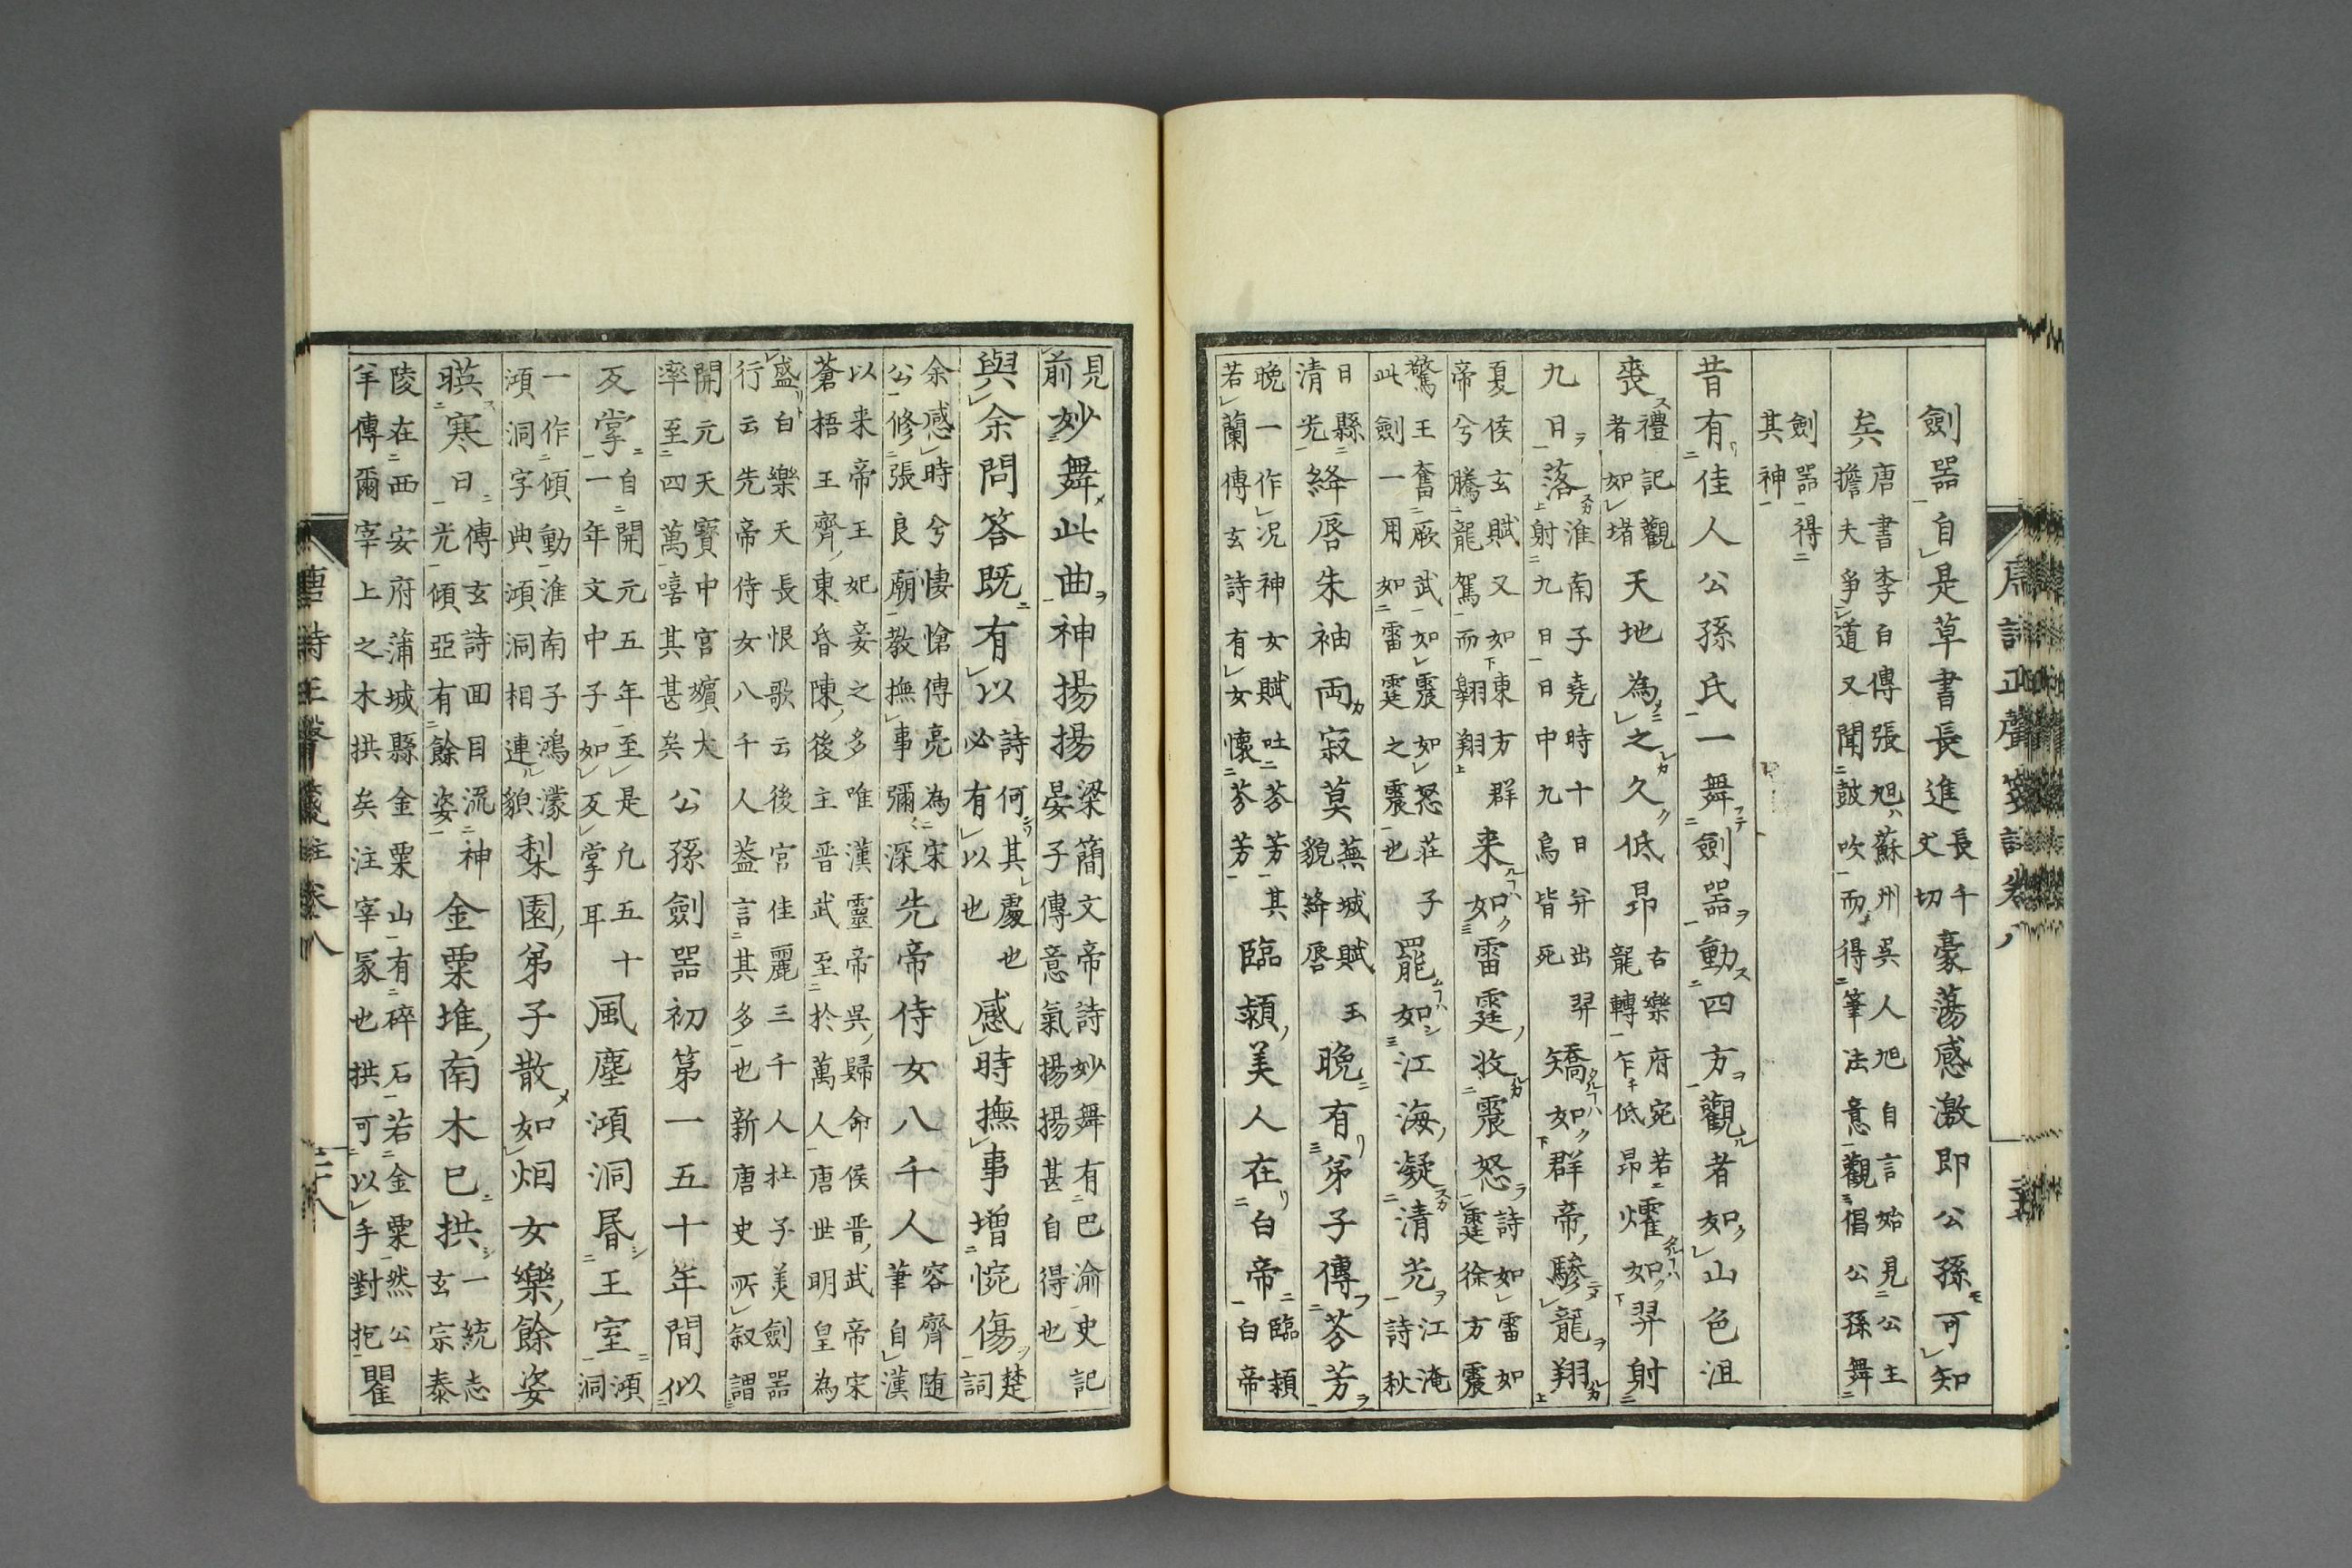 劍器自是草書長進長千丈切豪蕩感激即公孫可知
矣唐書李白傳張旭蘇州吳人旭自言始見公主擔夫爭道又聞鼓吹而得筆法意觀倡公孫舞
劍器得其神
昔有佳人公孫氏一舞劍器動四方觀者如山色沮
喪禮記觀者如堵天地為之久低昂右樂府宛若龍轉乍低昂㸌如羿射
九日落淮南子堯時十日并出羿射九日日中九烏皆死矯如群帝驂龍翔
夏侯玄賦又如東方群帝兮騰龍駕而翱翔来如雷霆收震怒詩如雷如霆徐方震
驚王奮厥武如震如怒莊子此劍一用如雷霆之震也罷如江海凝清光江淹詩秋
日縣清光絳唇朱袖兩寂莫蕪城賦玉貌絳唇晚有弟子傳芬芳
晚一作况神女賦吐芬芳其若蘭傳玄詩有女懷芬芳臨潁美人在白帝臨潁白帝
見前妙舞此曲神揚揚梁簡文帝詩妙舞有巴渝史記晏子傳意氣揚揚甚自得也
與余問答既有以詩何其處也必有以也感時撫事增惋傷楚詞
余感時兮悽愴傳亮為宋公修張良廟教撫事彌深先帝侍女八千人容齊随筆自漢
以来帝王妃妾之多唯漢靈帝吳歸命侯晋武帝宋蒼梧王齊東昏陳後主晋武至於萬人唐世明皇為
盛白樂天長恨歌云後宮佳麗三千人杜子美劍器行云先帝侍女八千人葢言其多也新唐史所叙謂
開元天寶中宮嬪大率至四萬嘻其甚矣公孫劍器初第一五十年間似
反掌自開元五年至是凡五十一年文中子如反掌耳風塵澒洞昏王室澒洞
一作傾動淮南子鴻濛澒洞字典澒洞相連貌梨園弟子散如烟女樂餘姿
暎寒日傳玄詩回目流神光傾亞有餘姿金粟堆南木已拱一統志玄宗泰
陵在西安府蒲城縣金粟山有碎石若金粟然公羊傳爾宰上之木拱矣注宰冢也拱可以手對抱瞿
唐詩正聲箋註卷八 二十八